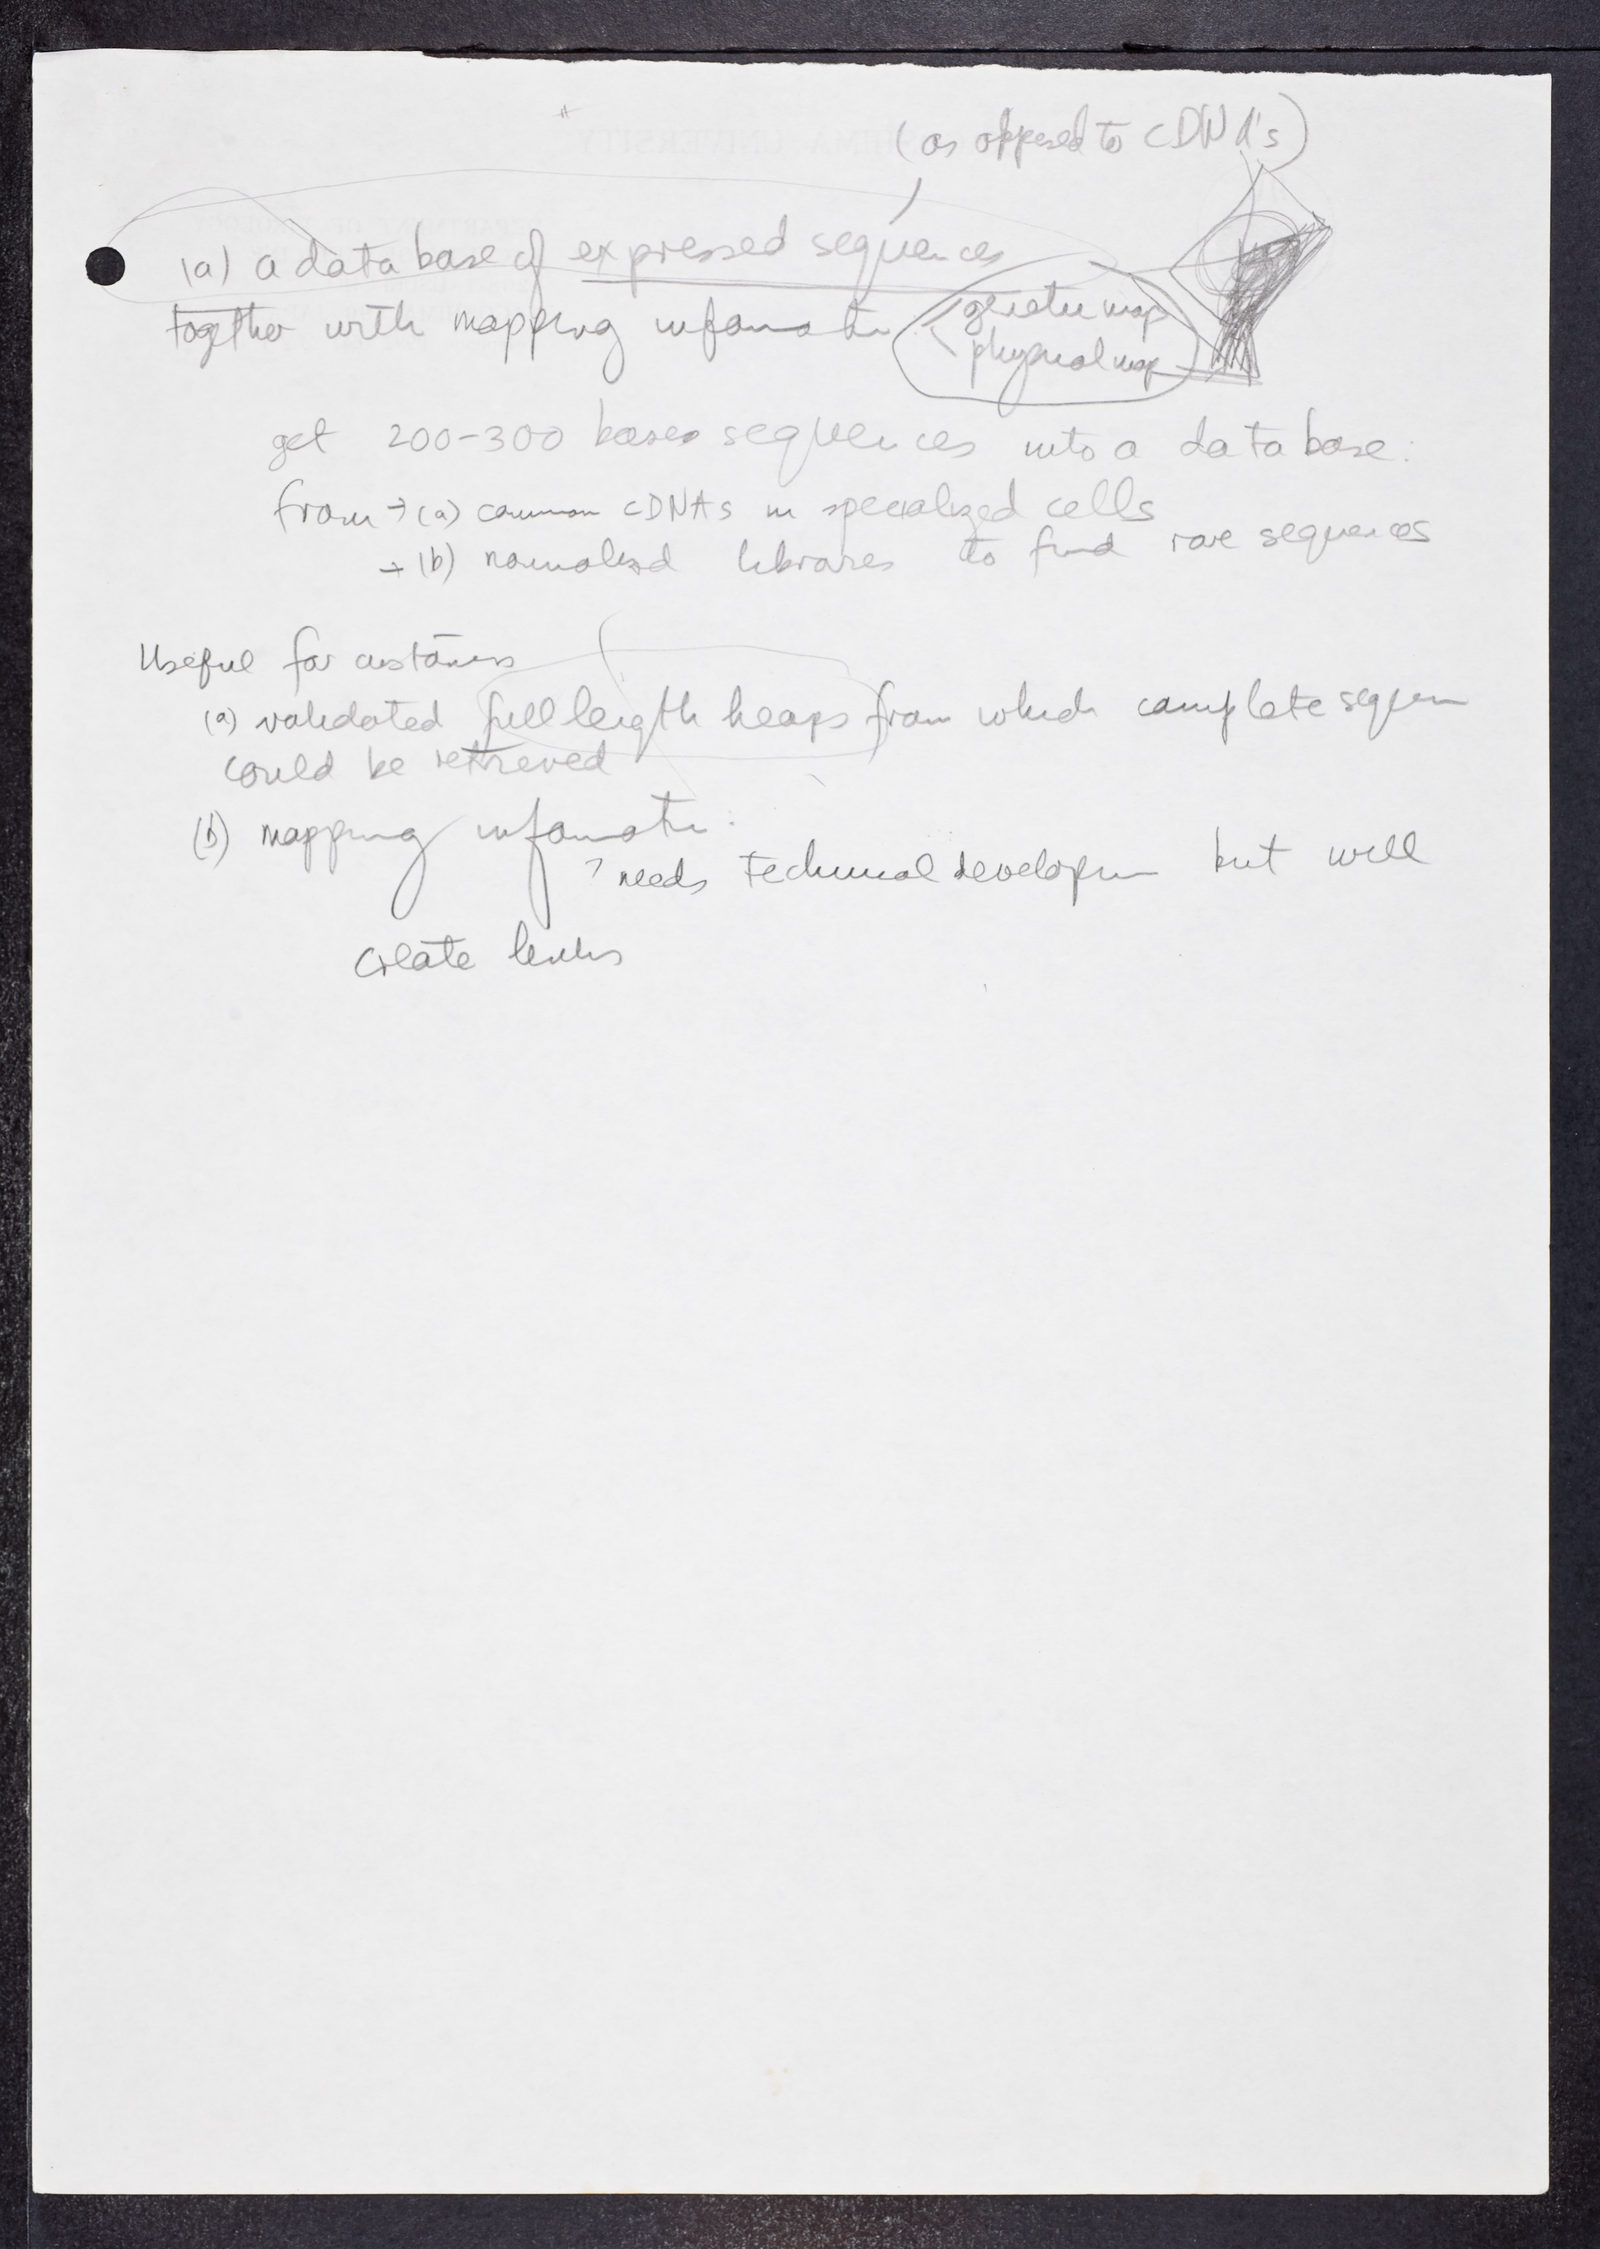 (as opposed to cDNA's)
(a) a database of expressed sequences
together with mapping information
genetic map
physical map
get 200-300 bases sequences into a database:
from → (a) common cDNAs in specialized cells
→ (b) normalized libraries to find rare sequences
Useful for customers
(a) validated full length heaps from which complete sequen
could be retrieved
(b) mapping information:
needs technical developm but will
create links